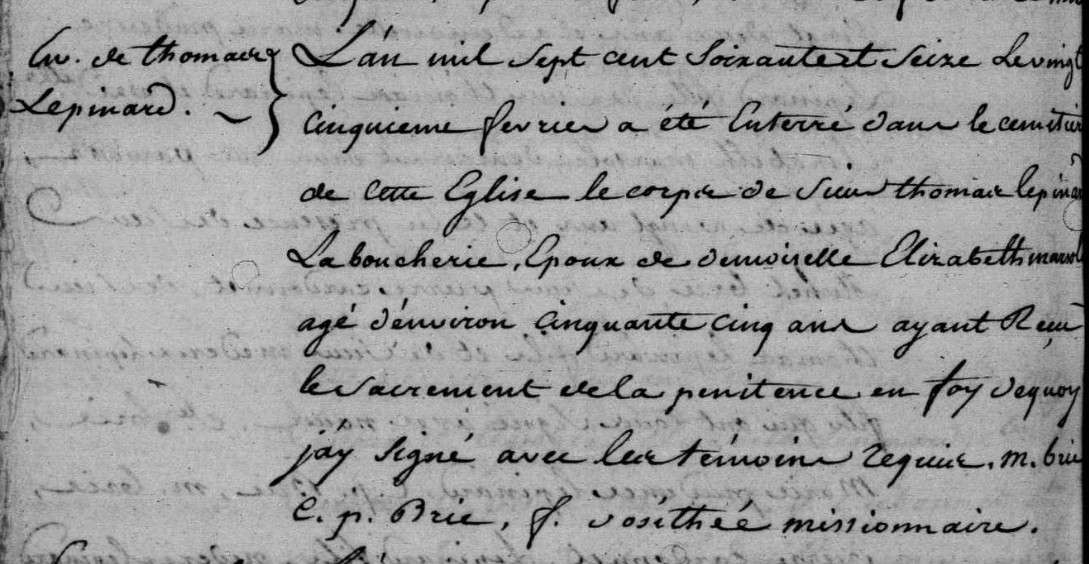 En. de thomas
Lepinard.
L'an mil sept cent soixante et seize le vingt
cinquieme fevrier a été Enterré dans le cemetier
de cette Eglise le corps de sieur thomas lepinard
La boucherie, Epoux de demoiselle Elizabeth
agé d'environ cinquante cinq ans ayant Reçu
le sacrement de la penitence en foy dequoy
jay signé avec les témoins requis. m. brie
C. p. Brie, f. dosithée missionnaire.